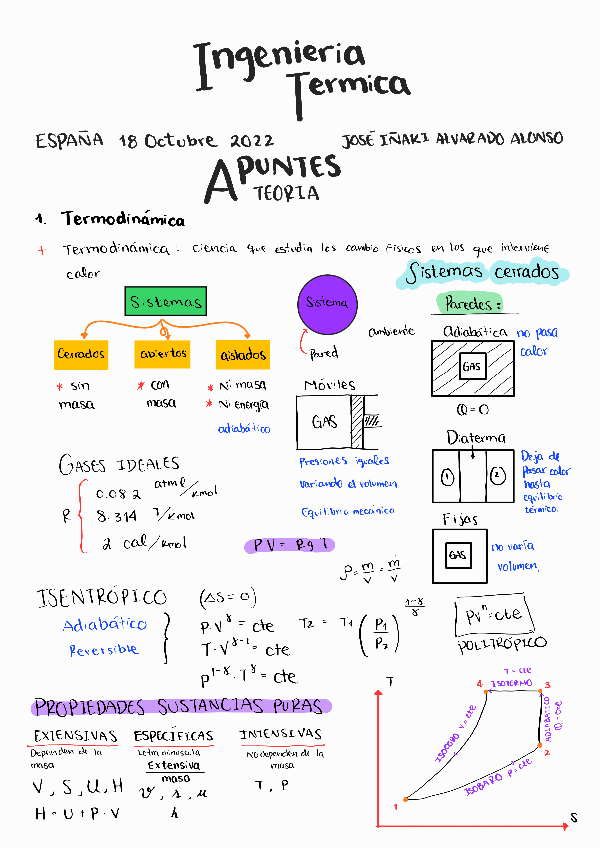 Ingenieria
Termica
ESPAÑA 18 Octubre 2022 JOSÉ IÑAKI ALVARADO ALONSO
APUNTES
TEORIA
1. Termodinámica
+ Termodinámica: Ciencia que estudia los cambio Físicos en los que interviene
calor
Sistemas cerrados
Sistemas
Cerrados abiertos aislados
* sin
masa
* con
masa
* Ni masa
* Ni energía
adiabático
Sistema
ambiente
Pared
Móviles
GAS
Presiones iguales
variando el volumen
Equilibrio mecánico
Paredes:
Adiabática no pasa
calor
GAS
Q = 0
Diaterma
1 2
Deja de
pasar calor
hasta
equilibrio
térmico.
Fijas
GAS
no varía
volumen.
GASES IDEALES
R
0.082 atml/kmol
8.314 J/kmol
2 cal/kmol
PV = RgT
ρ = m/v = ṁ/v
ISENTRÓPICO (ΔS = 0)
Adiabático
Reversible
P·V^γ = cte
T·V^γ-1 = cte
P^1-γ·T^γ = cte
T2 = T1 (P1/P2)^1-γ/γ
PV^n = cte
POLITRÓPICO
PROPIEDADES SUSTANCIAS PURAS
EXTENSIVAS
Dependen de la
masa
V, S, U, H
H = U + P·V
ESPECÍFICAS
Letra minuscula
Extensiva
masa
v, s, u
h
INTENSIVAS
No dependen de la
masa
T, P
T
T = cte
4 ISOTERMO 3
ISOCORO V = cte
ADIABÁTICO
Q = cte
2
ISOBARO P = cte
1
S